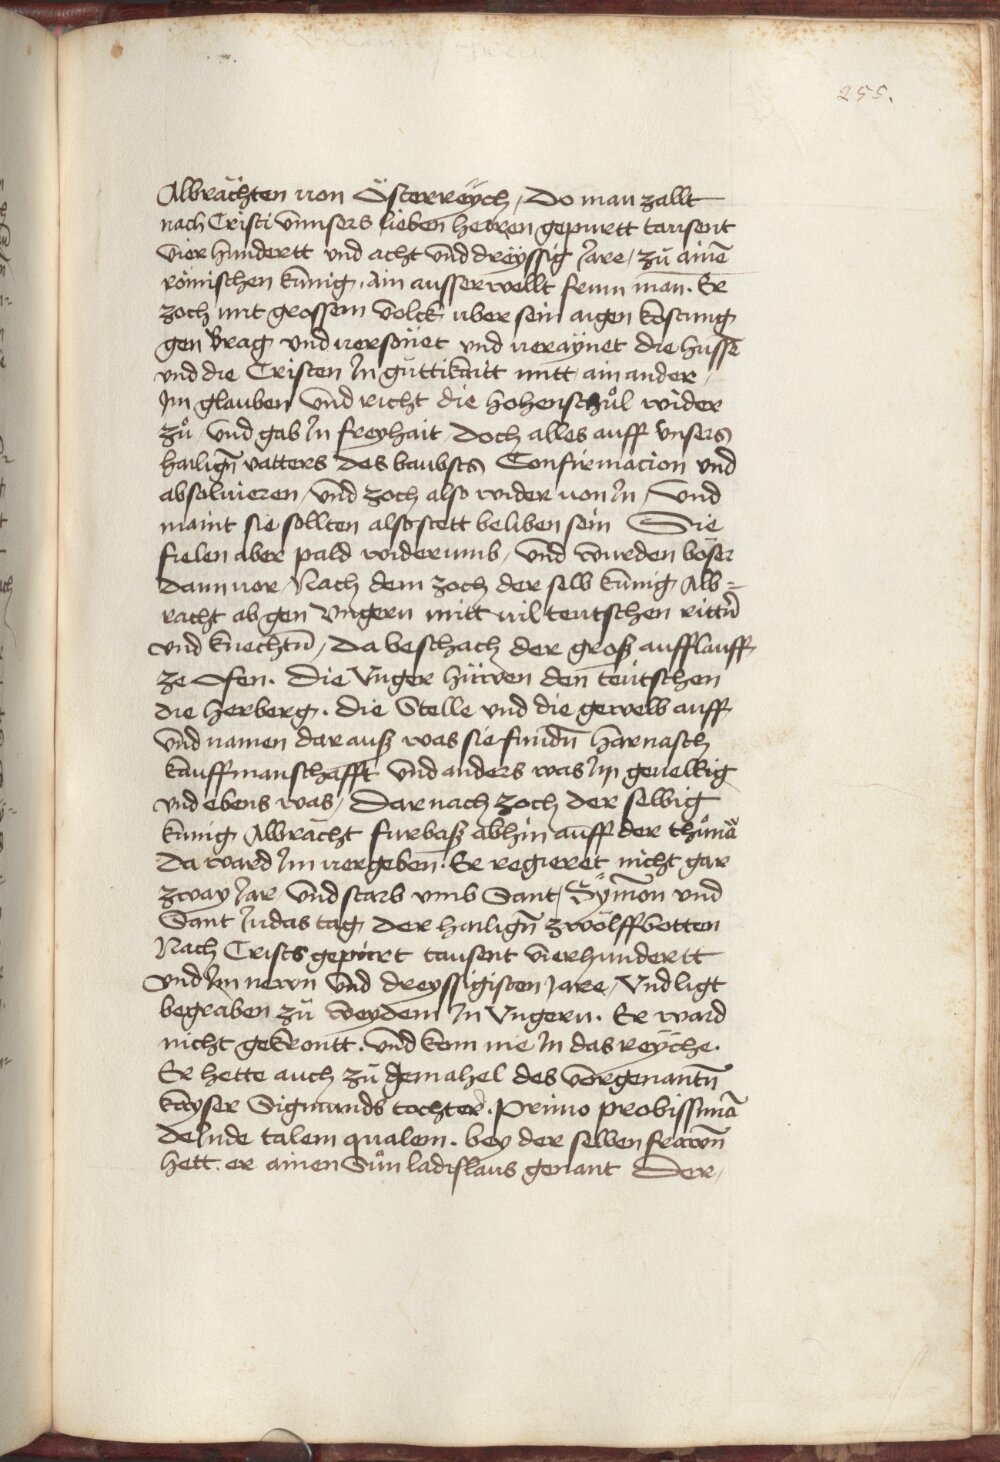 255.
Albrächten von Österreÿch / Do man zallt
nach Cristi vnnsers lieben herren gepurtt tausent
vier hundertt vnd acht vnd dreÿssig Jare / zů ainē
römischen künig / ain ausserwellt frum man . Er
zoch mit grossem volck uber sein aigen kostung
gen Brag vnd versönet vnd veraÿnet die hussē
vnd die Cristen Jn güttikaitt mitt ainander /
Jm glauben vnd richt die hohenschůl wider
zů / vnd gab Jn freyhait / doch alles auff vnsers
hailign̄ vatters des baubsts Confirmacion vnd
absoluieren / vnd zoch also wider von Jn / Vnd
maint sie sollten also stett beliben sein Sie
fielen aber pald widerumb / vnd wurden böser
dann vor / Nach dem zoch der selb künig Alb=
racht ab gen Vngern mitt vil teutschen rittern̄
vnd knechtn̄ / da beschach der groß aufflauff
ze Ofen . die Vnger hüwen den teütschen
die herberg . die Stelle vnd die gewelb auff
vnd namen dar auß was sie fundn̄ harnasch
kauffmanschafft vnd anders was Jm geuellig
vnd ebens was / Darnach zoch der selbig
künig Albrächt furbaß abhin auff der thůnä
da ward Jm vergeben . Er regieret nicht gar
zway Jar / vnd starb vmb Sant / Sÿmon vnd
Sant Judas tag der hailign̄ zwölffbotten
Nach Crists gepürt tausent vierhundertt
vnd Jm newn vnd dreyssigisten Jare / Vnd ligt
begraben zů weydem Jn Vngern . Er ward
nicht gekrontt . vnd kom nie Jn das reÿche .
Er hette auch zů gemahel des vorgenantn̄
kayser Sigmunds tochter . Primo probissimā
deinde talem qualem . bey der selben frawn̄
hett . er ainen Sůn ladislaus genant Der /